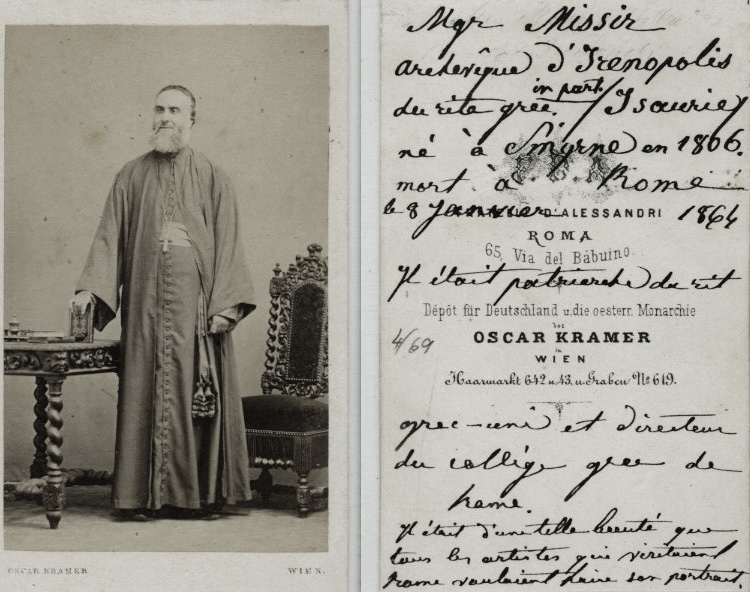 OSCAR KRAMER WIEN.
Mgr Missir
archevêque d'Irenopolis
in part.
du rite grec. (Isaurie)
né à Smyrne en 1806.
mort à Rome
le 8 Janvier 1864
D'ALESSANDRI
ROMA
65, Via del Babuino.
Il était patriarche du rit
Dépôt für Deutschland u. die oesterr. Monarchie
bei
OSCAR KRAMER
in
WIEN
4/69
Haarmarkt 642 u. 43, u. Graben No 619.
grec-uni et directeur
du collège grec de
Rome.
Il était d'une telle beauté que
tous les artistes qui visitaient
Rome voulaient faire son portrait.